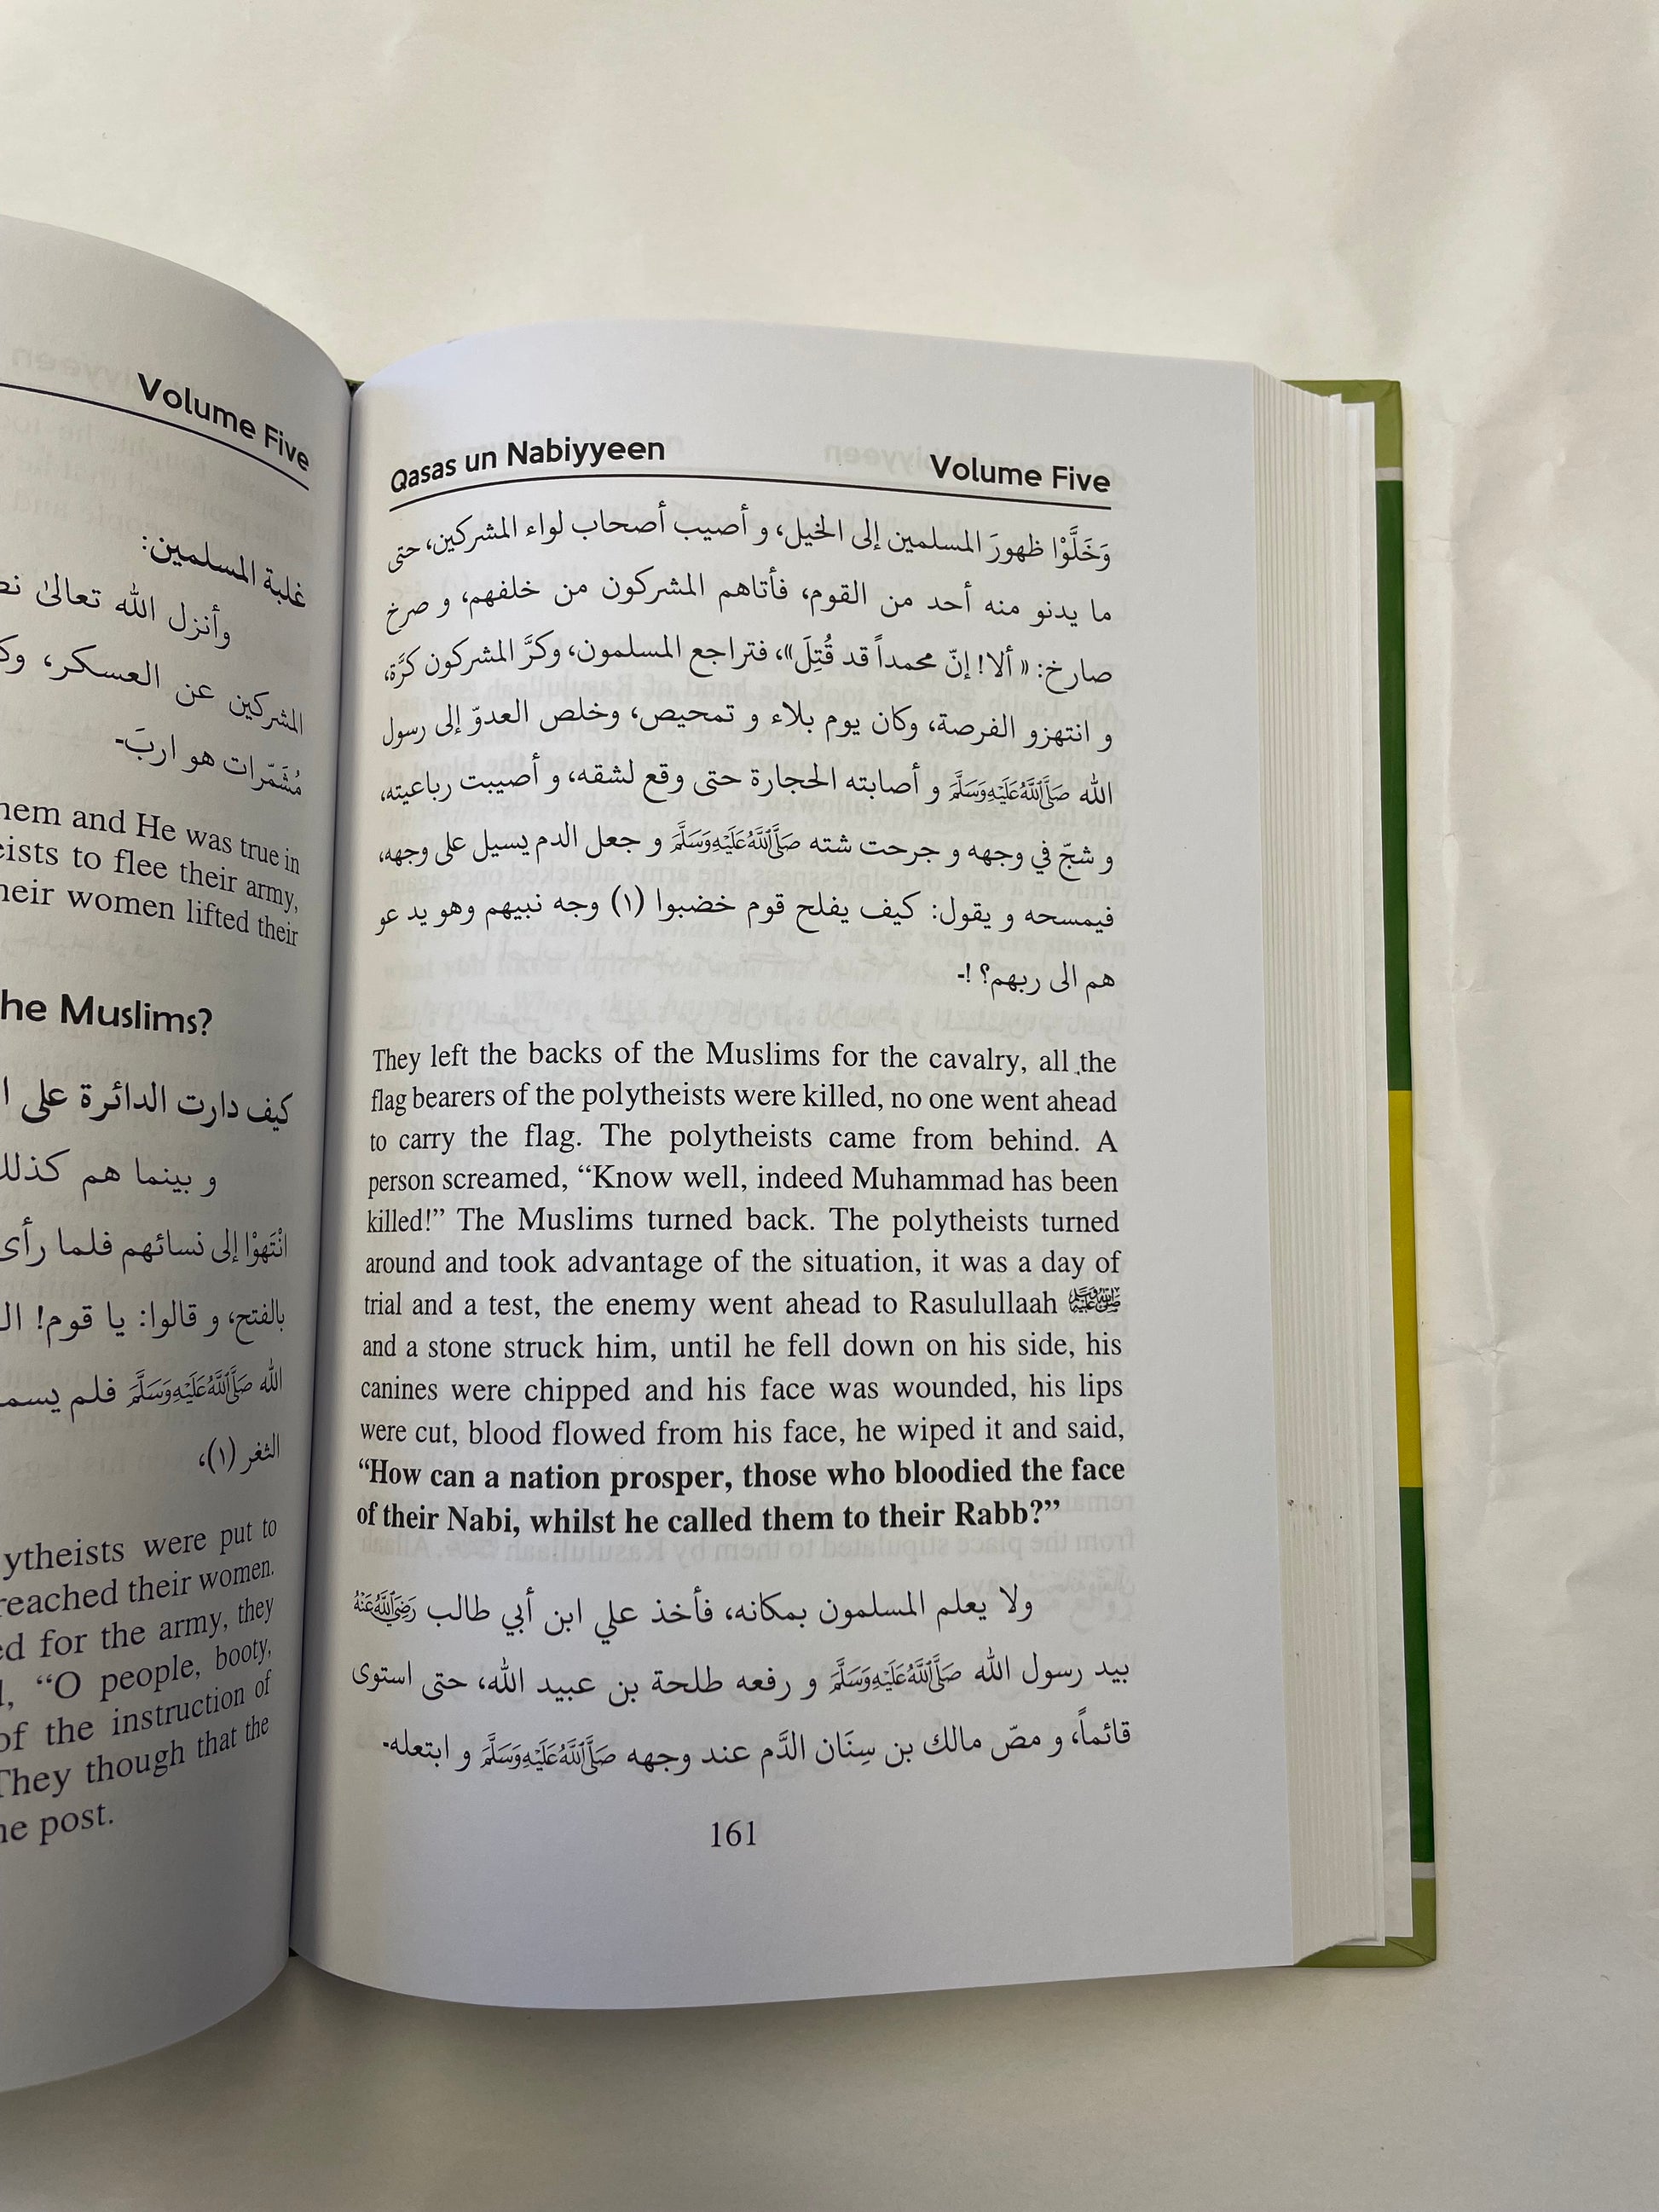 Volume Five
غلبة المسلمين:
وأنزل الله تعالىٰ
المشركين عن العسكر،
مُشَمّرات هو اربَ-
and He was true in
to flee their army,
women lifted their
he Muslims?
كيف دارت الدائرة على
و بينما هم كذلك
انْتَهوْا إلى نسائهم فلما رأى
بالفتح، و قالوا: يا قوم!
الله صَلَّى اللَّهُ عَلَيْهِ وَسَلَّمَ فلم
الثغر (١)،
were put to
reached their women.
for the army, they
“O people, booty,
of the instruction of
They though that the
post.
Qasas un Nabiyyeen Volume Five
وَخَلَّوْا ظهورَ المسلمين إلى الخيل، و أصيب أصحاب لواء المشركين، حتى
ما يدنو منه أحد من القوم، فأتاهم المشركون من خلفهم، و صرخ
صارخ: «ألا! إنّ محمداً قد قُتِلَ»، فتراجع المسلمون، وكرَّ المشركون كرَّة،
و انتهزو الفرصة، وكان يوم بلاء و تمحيص، وخلص العدوّ إلى رسول
الله صَلَّى اللَّهُ عَلَيْهِ وَسَلَّمَ و أصابته الحجارة حتى وقع لشقه، و أصيبت رباعيته،
و شجّ في وجهه و جرحت شته صَلَّى اللَّهُ عَلَيْهِ وَسَلَّمَ و جعل الدم يسيل على وجهه،
فيمسحه و يقول: كيف يفلح قوم خضبوا (١) وجه نبيهم وهو يد عو
هم الى ربهم؟ !-
They left the backs of the Muslims for the cavalry, all the
flag bearers of the polytheists were killed, no one went ahead
to carry the flag. The polytheists came from behind. A
person screamed, “Know well, indeed Muhammad has been
killed!” The Muslims turned back. The polytheists turned
around and took advantage of the situation, it was a day of
trial and a test, the enemy went ahead to Rasulullaah ﷺ
and a stone struck him, until he fell down on his side, his
canines were chipped and his face was wounded, his lips
were cut, blood flowed from his face, he wiped it and said,
“How can a nation prosper, those who bloodied the face
of their Nabi, whilst he called them to their Rabb?”
ولا يعلم المسلمون بمكانه، فأخذ علي ابن أبي طالب رَضِيَ اللَّهُ عَنْهُ
بيد رسول الله صَلَّى اللَّهُ عَلَيْهِ وَسَلَّمَ و رفعه طلحة بن عبيد الله، حتى استوى
قائماً، و مصّ مالك بن سِنَان الدَّم عند وجهه صَلَّى اللَّهُ عَلَيْهِ وَسَلَّمَ و ابتعله-
161